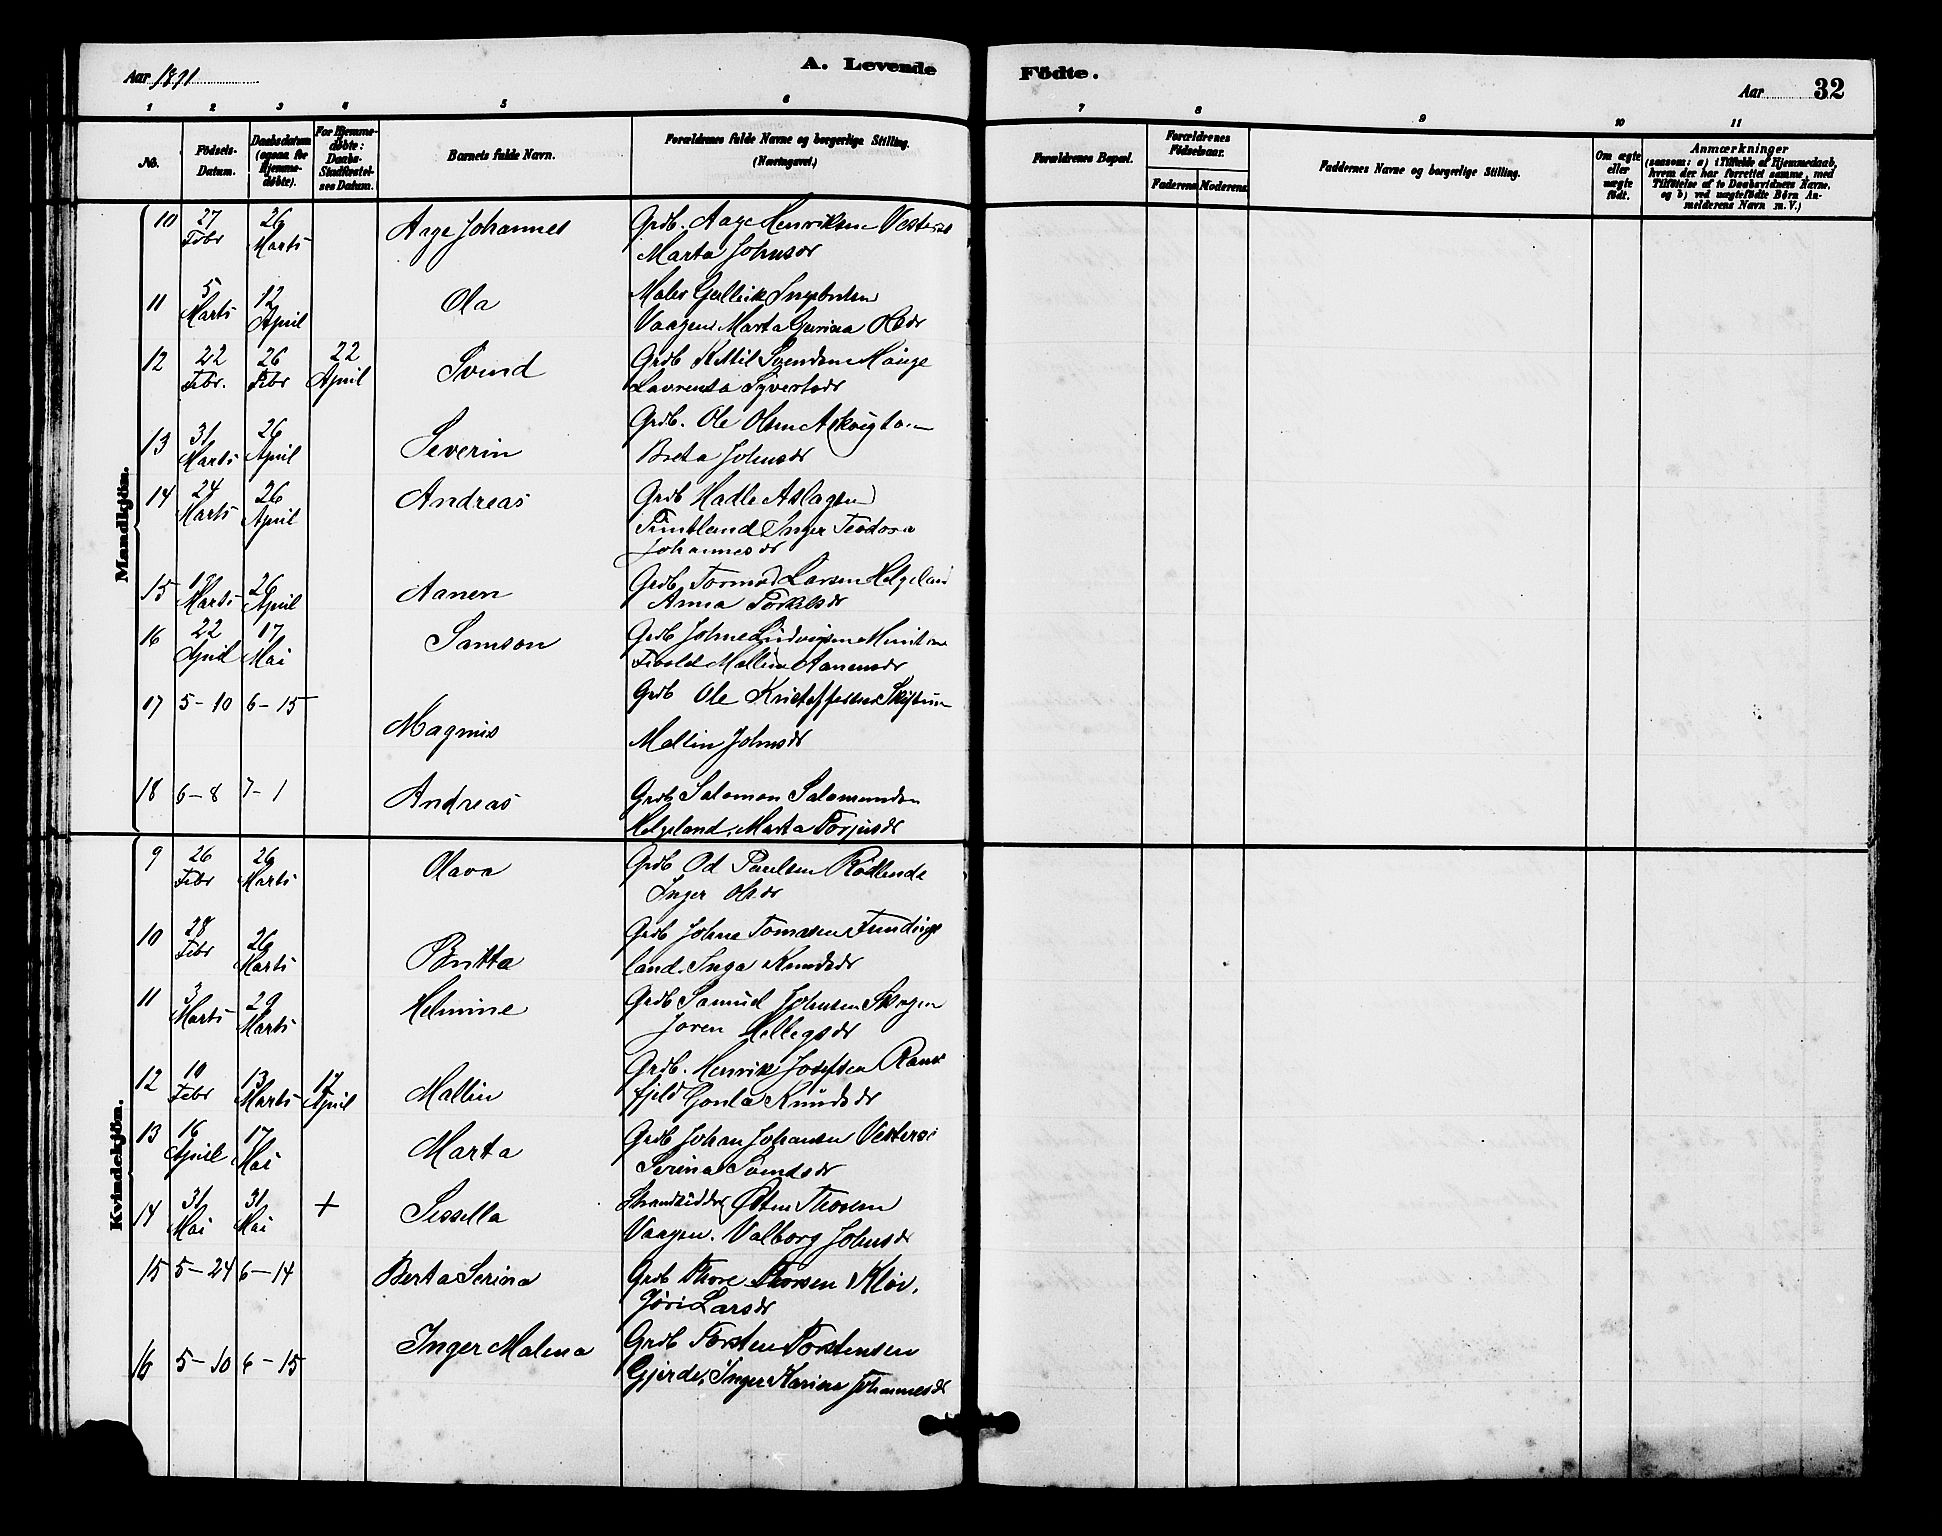 Aar 1891
A. Levende
Födte.
Aar 32
1 2 3 4 5 6 7 8 9 10 11
No.
Födsels-Datum.
Daabsdatum (ogsaa for Hjemme-döbte).
For Hjemme-døbte: Daabs-Stadfæstel-ses Datum.
Barnets fulde Navn.
Forældrenes fulde Navne og borgerlige Stilling. (Næringsvei.)
Forældrenes Bopæl.
Forældrenes Födselsaar.
Faderens Moderens
Faddernes Navne og borgerlige Stilling.
Om ægte eller uægte födt.
Anmærkninger
(saasom: a) i Tilfælde af Hjemmedaab, hvem der har forrettet samme, med Tilföielse af to Daabsvidners Navne, og b) ved uægtefödte Börn An-melderens Navn m. V.)
Mandkjön.
10 27 Febr 26 Marts Aage Johannes Grdb. Aage Henriksen
Marta Johnsdr
11 5 Marts 12 April Ola
Vaagen Marta Gurina Olsdr
12 22 Febr. 26 Febr 22 April Svend Grdb Kittil Svendsen Hauge
Laurensa Syvertsdr
13 31 Marts 26 April Severin Grdb. Ole Olsen
Berta Johnsdr
14 24 Marts 26 April Andreas Grdb Hadle Aslagsen
Inger Teodora
Johannesdr
15 Marts 26 April Aanen Grdb. Tormod Larsen Helgeland
Anna
16 22 April 17 Mai Samson Grdb Johne
Mallina Aanensdr
17 5-10 6-15 Magnus Grdb Ole Kristoffersen
Mallin Johnsdr
18 6-8 7-1 Andreas Grdb Salomon Salomonsen
Helgeland, Marta Torjusdr
Kvindekjön.
9 26 Febr 26 Marts Olava Grdb Od Paulsen
Inger Olsdr
10 28 Febr 26 Marts Britta Grdb Johne Tomassen
land. Inga Knudsdr
11 3 Marts 29 Marts Helmine Grdb Samuel Johnsen Skogen
Joren
12 10 Febr 13 Marts 17 April Mallin Grdb. Henrik Josefsen
fjeld Gonla Knudsdr
13 16 April 17 Mai Marta Grdb Johan Johansen
Serina Svendsdr
14 31 Mai 31 Mai + Sissella Strandsidder Østen Thorsen
Vaagen. Valborg Johnsdr
15 5-24 6-14 Berta Serina Grdb Thore Thorsen
Jöri Larsdr
16 5-10 6-15 Inger Malena Grdb Torsten Torstensen
Gjerde, Inger Karina Johannesdr